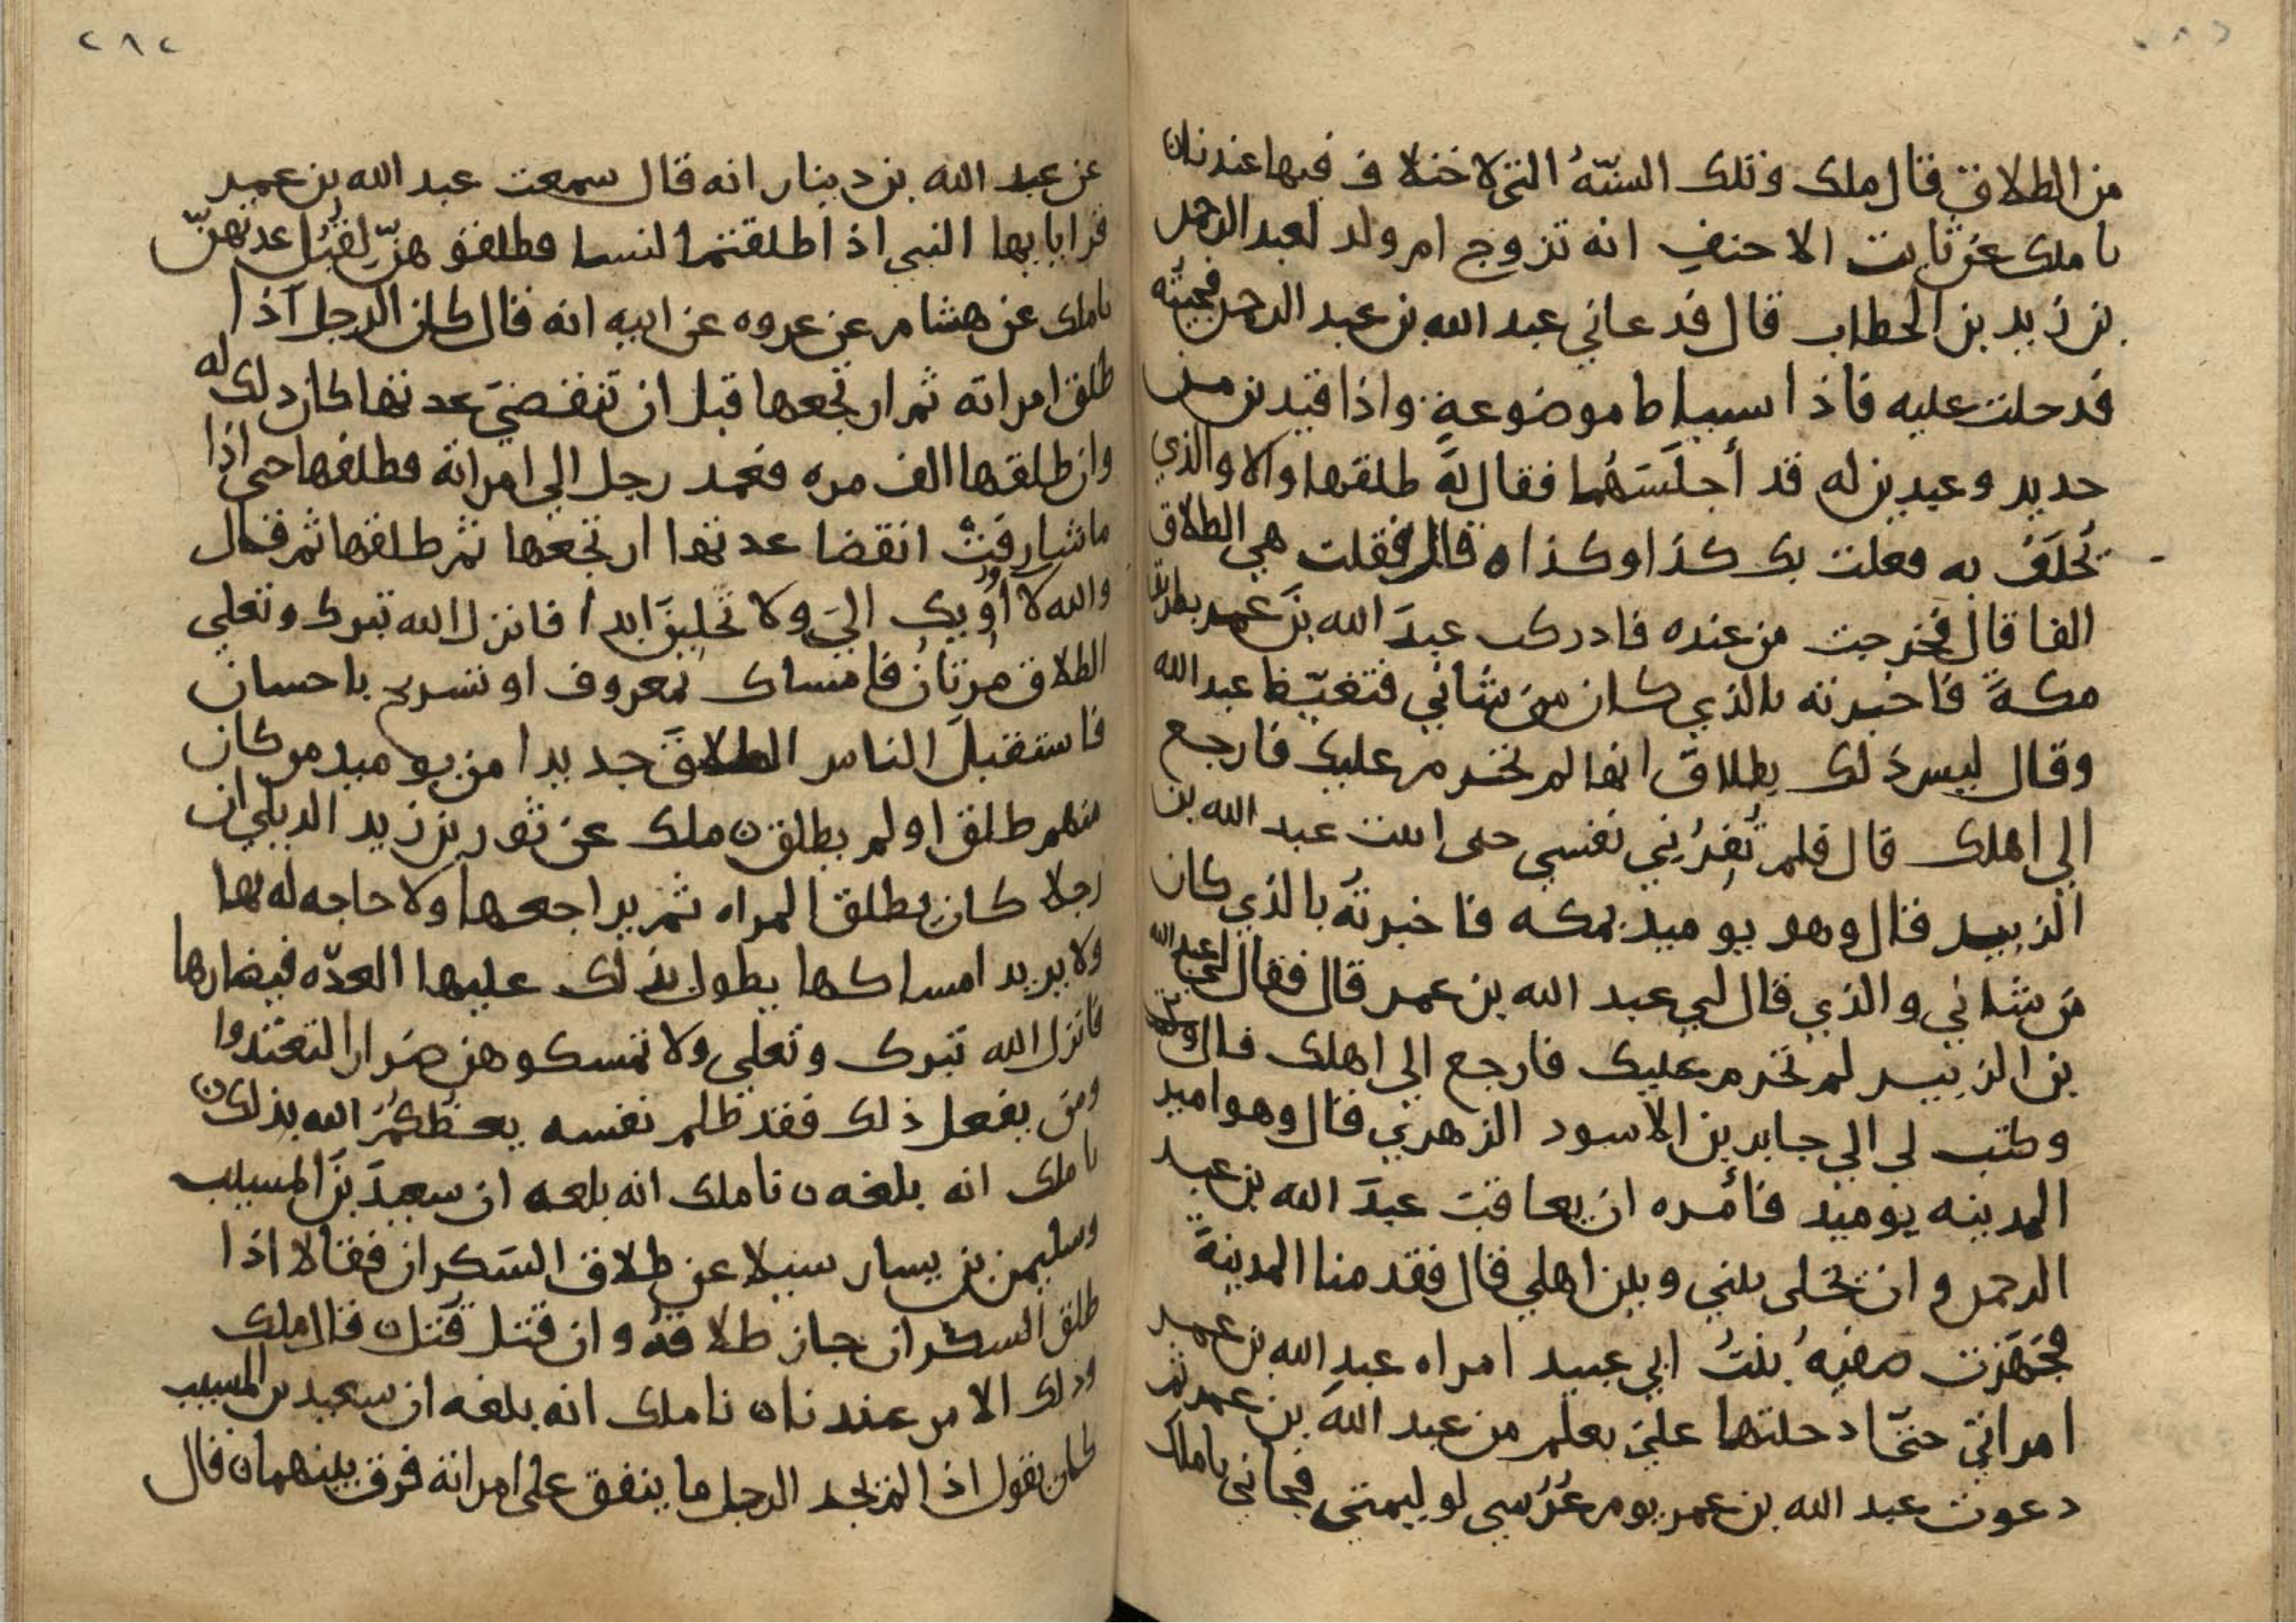 من الطلاق قال ملك وتلك السنّةُ التي لا ختلاف فيها عندنا ن
نا ملك عن ثابت الاحنف انه تزوج ام ولد لعبد الرحمن
بن زيد بن الخطاب قال فدعاني عبد الله بن عبد الرحمن فجيتُه
فدخلت عليه فاذا سياط موضوعةٍ واذا قيدين من
حديد وعبدين له قد أجلَسَهُما فقال لهً طلقها والا والذي
تُحلَفُ به فعلت بك كذا وكذا ه قال فقلت هي الطلاق
الفا قال فخرجت من عنده فادركت عبدَ الله بنَ عمر بطريق
مكةً فاخبرته بالذي كان من شاني فتغيّظ عبد الله
وقال ليس ذلك بطلاق انها لم تحرم عليك فارجع
الي اهلك قال فلم تُقِرُني نفسي حتى اتيت عبد الله بن
الزبير قال وهو يوميد بمكه فاخبرتهُ بالذي كان
من شاني والذي قال لي عبد الله بن عمر قال فقال لي عبد الله
بن الزبير لم تحرم عليك فارجع الي اهلك قال
وكتب لي الي جابر بن الاسود الزهري قال وهو امير
المدينه يوميد فأمره ان يعاقبَ عبدَ الله بن عبد
الرحمن وان يخلى بيني وبين اهلي قال فقدمنا المدينةَ
فجَهَزت صفيهُ بنتُ ابي عبيد امراه عبدِ الله بن عمر
امراتي حتّا دخلتها علي بعلم من عبد الله بن عمر ثم
دعوت عبد الله بن عمر يوم عُرُسي لوليمتي فجاني نا ملك
٢٨٢
عن عبد الله بن دينار انه قال سمعت عبد الله بن عمر
قرا يايها النبي اذا طلقتم النسا فطلقوهنّ لقُبُل عدتهنّ
نا ملك عن هشام عن عروه عن ابيه انه قال كان الرجل اذا
طلق امراته ثم ارتجعها قبل ان تنقضيَ عدتها كان ذلك له
وان طلقها الف مره فعمد رجل الي امراته فطلقها حتى اذا
ما شارفت انقضا عدتها ارتجعها ثم طلقها ثم قال
والله لا أُوويك اليَ ولا تَحلينَ ابدا فانزل الله تبرك وتعلي
الطلاق مرتان فامساك بمعروف او تسريح باحسان
فاستقبلَ الناس الطلاقَ جديدا من يوميد من كان
منهم طلق اولم يطلق ن ملك عن ثور بن زيد الديلي ان
رجلا كان يطلق المراه ثم يراجعها ولا حاجه له بها
ولا يريد امساكها يطول بذلك عليها العدّه فيضارها
فانزل الله تبرك وتعلي ولا تمسكوهن ضرارا لتعتدوا
ومن يفعل ذلك فقد ظلم نفسه يعظكُمُ الله بذلك ن
نا ملك انه بلغه ن نا ملك انه بلغه ان سعيدَ بنَ المسيب
وسليمن بن يسار سئيلا عن طلاق السَكران فقالا اذا
طلق السكران جاز طلاقهُ وان قتل قُتل ن قال ملك
وذلك الامر عندنا ن نا ملك انه بلغه ان سعيد بن المسيب
كان يقول اذا لم يجد الرجل ما ينفق على امراته فُرِق بينهما ن قال